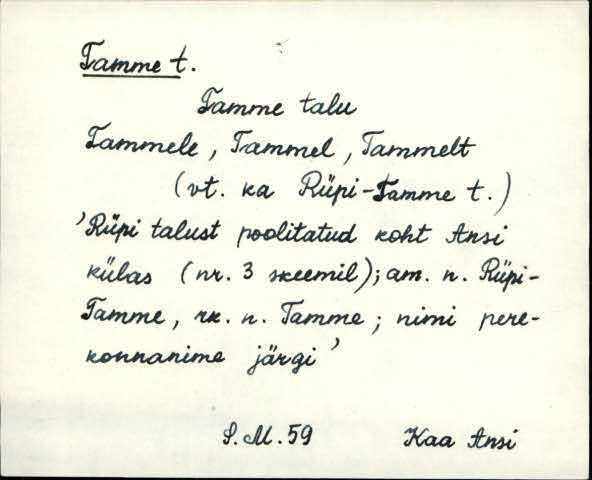 Tamme t.
Tamme talu
Tammele, Tammel, Tammelt
(vt. ka Rüpi-Tamme t.)
'Rüpi talust poolitatud koht Ansi
külas (nr. 3 skeemil); am. n. Rüpi-
Tamme, rk. n. Tamme; nimi pere-
konnanime järgi'
S.M. 59 Kaa Ansi